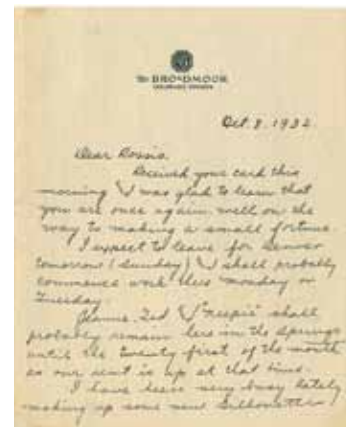 The BROADMOOR
COLORADO SPRINGS
Oct. 8, 1932.
Dear
Received your card this
morning & was glad to learn that
you are once again well on the
way to making a small fortune.
I expect to leave for Denver
tomorrow (Sunday) & shall probably
commence work there Monday or
Tuesday.
Jeanne, Ted & "Keepie" shall
probably remain here in the Springs
until the twenty first of the month
as our rent is up at that time.
I have been very busy lately
making up some new Silhouettes